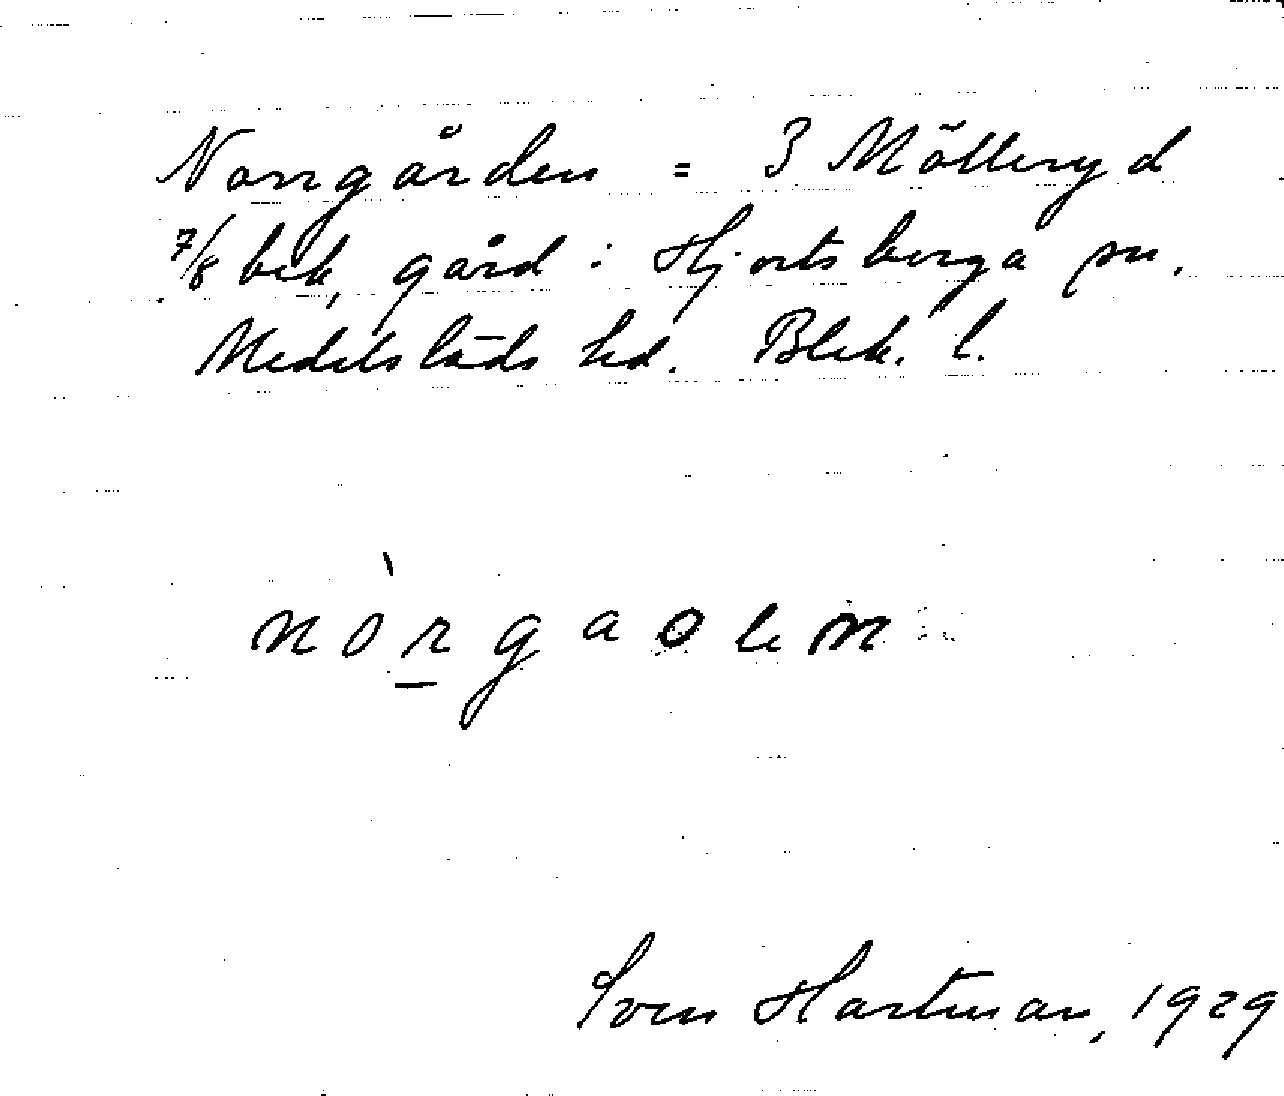 Norrgården = 3 Mölleryd
7/8 bek, gård i Hjortsberga sn.
Medelstads hd. Blek. l.
nòrgaolen
Sven Hartman, 1929